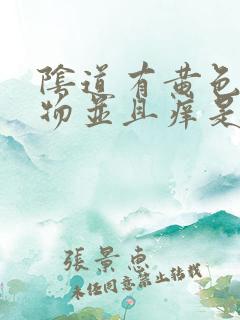 陰道有黄色
物並且痒是
張景惠
未经同意禁止转载